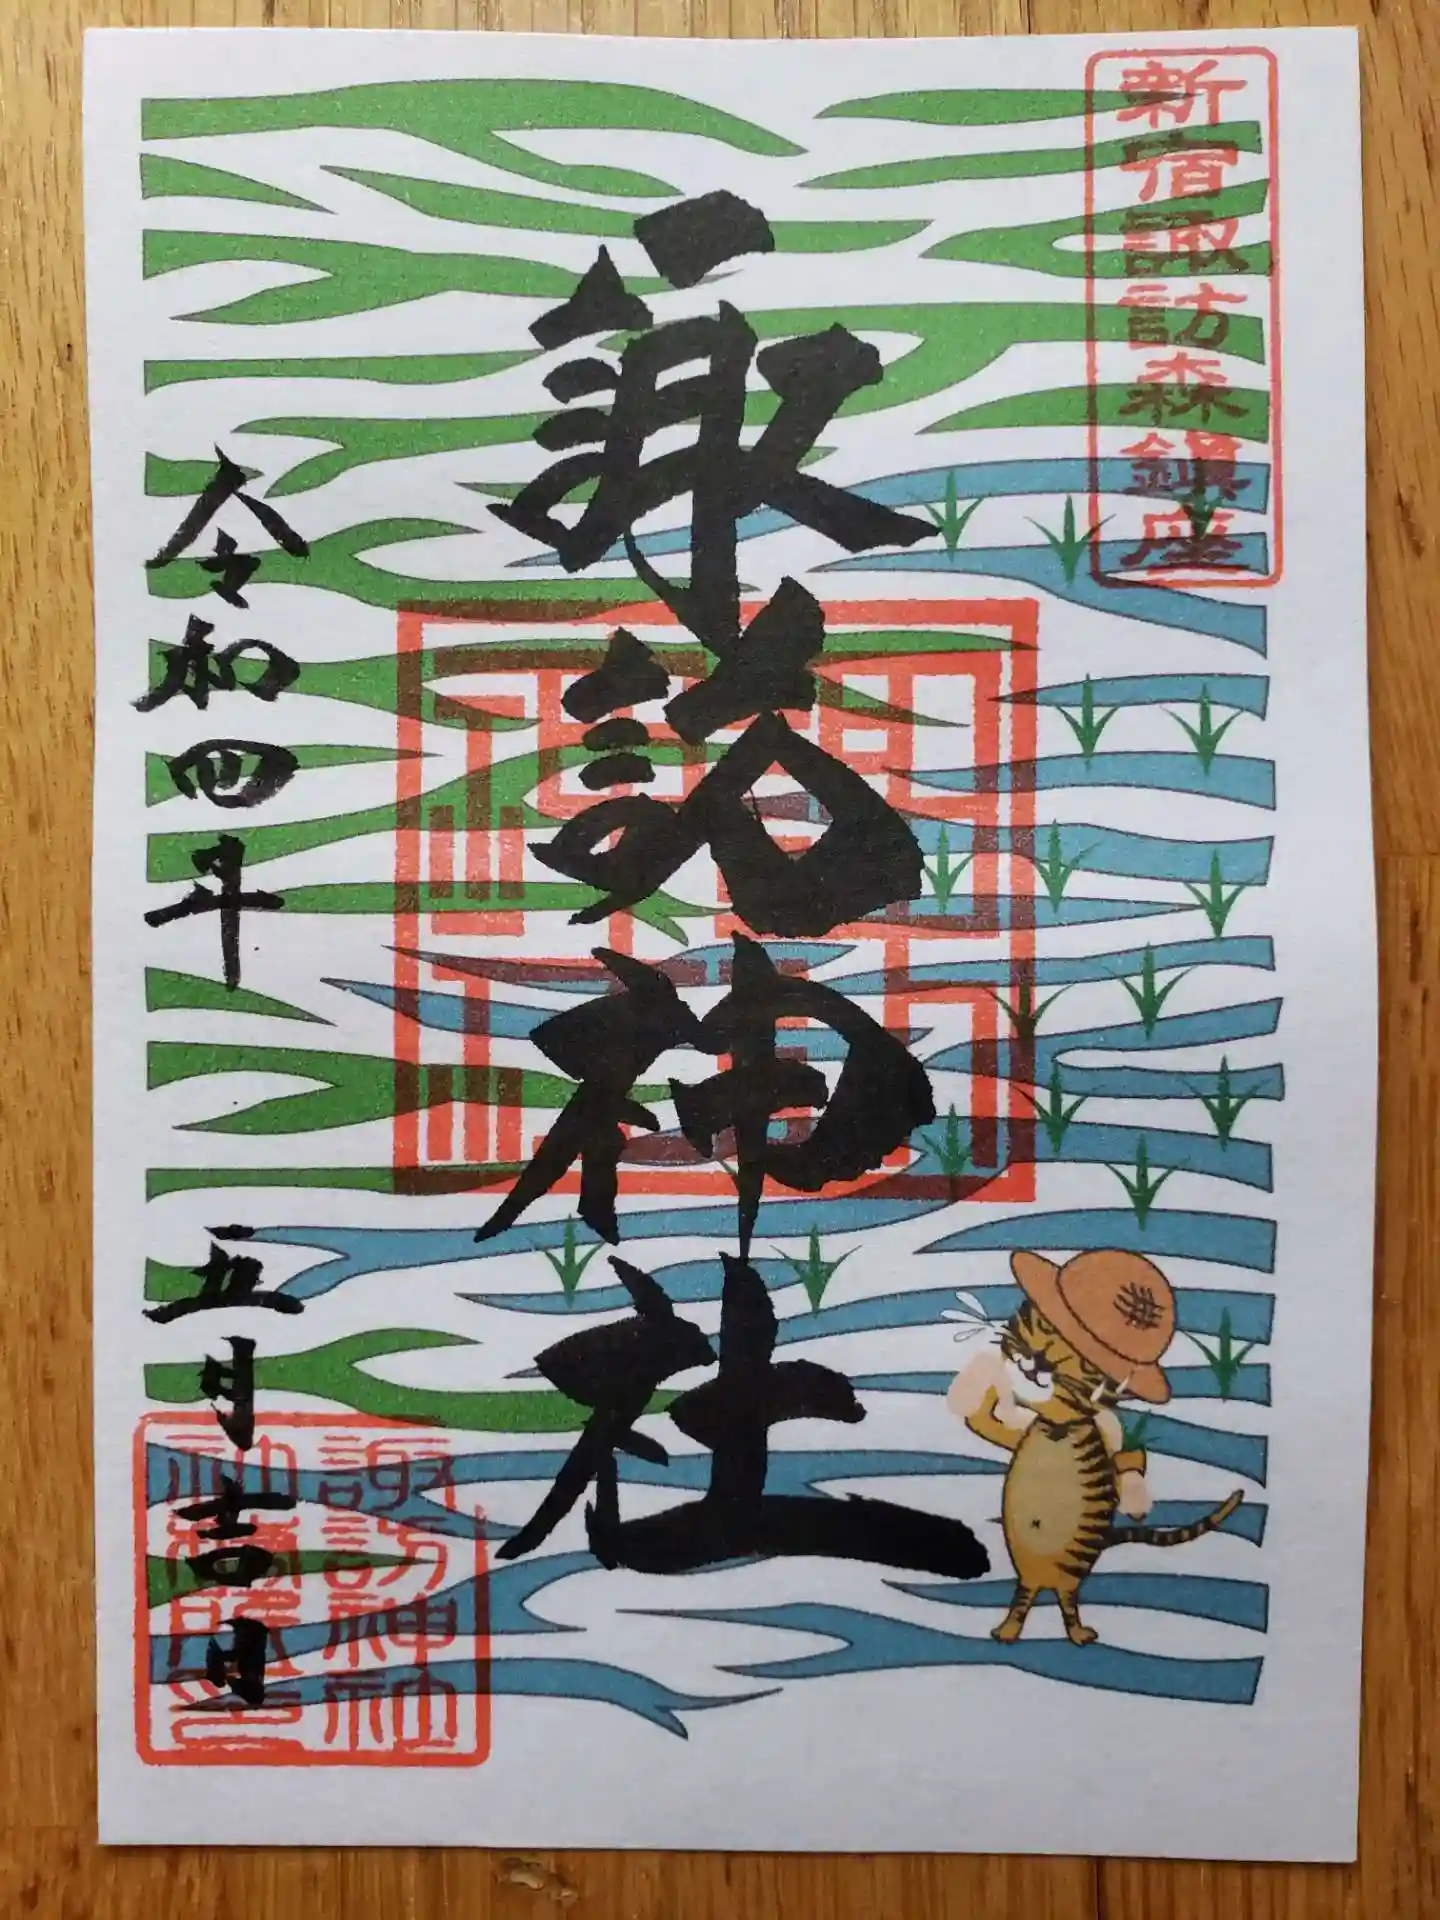 新宿諏訪森鎮座
諏訪神社
令和四年
五月吉日
諏訪神社